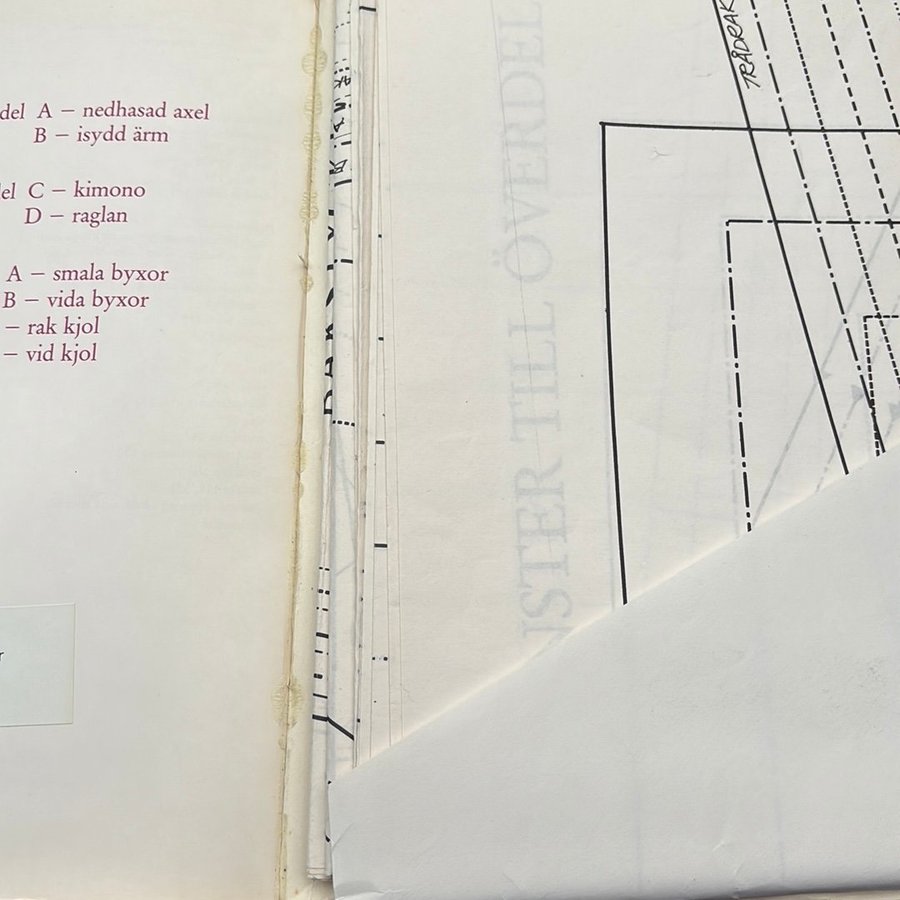 del A – nedhasad axel
B – isydd ärm
del C – kimono
D – raglan
A – smala byxor
B – vida byxor
– rak kjol
– vid kjol
TRÅDRAK
NSTER TILL ÖVERDEL